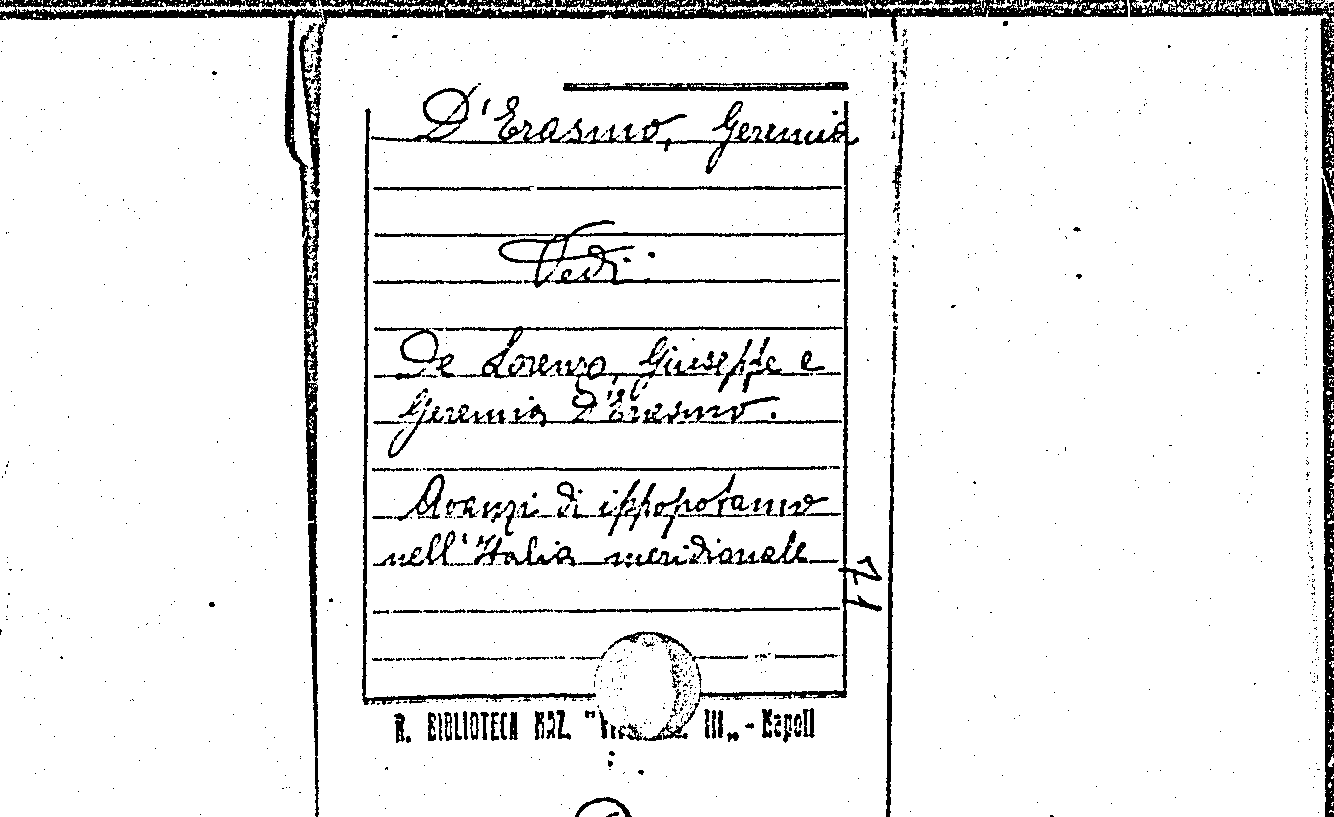 D'Erasmo, Geremia
Vedi:
De Lorenzo, Giuseppe e
Geremia D'Erasmo.
Avanzi di ippopotamo
nell'Italia meridionale
71
R. BIBLIOTECA NAZ. " III„ - Napoli